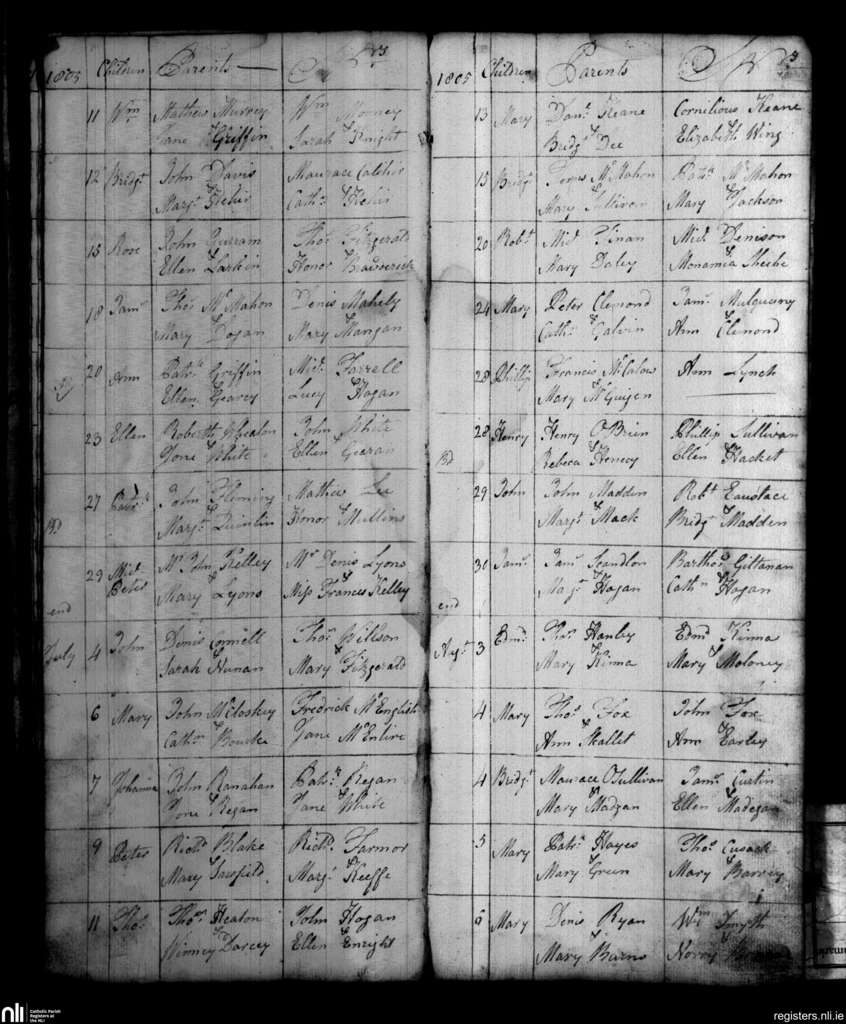 1805 Children Parents
11 Wm Mathew Murrey Wm Mooney
Jane & Griffin Sarah & Knight
12 Bridgt John Davis Maurace
Margt & Cathn &
15 Rose John Thos Fitzgerald
Ellen & Larkin Honor &
18 Jams Thos McMahon Denis Mahely
Mary & Dogan Mary & Mangan
20 Ann Patrk Griffin Micl Farrell
Ellen Gearey Lucy & Hogan
23 Ellen Roberth Whealon John White
Jone & White Ellen & Gearan
27 Patrk John Fleming Mathew Lee
Bd Margt & Quinlin Honor & Mullins
29 Micl Mr John Kelley Mr Denis Lyons
Peter Mary & Lyons Miss Frances Kelley
end
July 4 John Denis Connell Thos Willson
Sarah & Nunan Mary & Fitzgerald
6 Mary John McCloskey Fredrick McEnglish
Cathn & Bourke Jane McEnlire
7 Johanna John Ranahan Patrk Regan
Jone & Regan Jane & White
9 Peter Richd Blake Richd Farmor
Mary & Sarsfield Margt & Keeffe
11 Thos Thos Heaton John Hogan
Winney & Darcey Ellen & Enright
1805 Children Parents
13 Mary Danl Keane Cornilious Keane
Bridgt & Dee Elizabeth Wing
15 Bridgt McMahon Patrk McMahon
Mary & Sullivan Mary & Jackson
20 Robt Micl Tinan Micl Denison
Mary & Daley Monamia Sheehe
24 Mary Peter Clemond Jams Mulqueeny
Cathn & Galvin Ann & Clemond
28 Phillip Francis McCalow Ann Lynch
Mary & McGuigen
28 Henry Henry OBrien Phillip Sullivan
Bd Rebeca & Henecy Ellen & Hacket
29 John John Madden Robt Eaustace
Margt & Mack Bridgt & Madden
30 Jams Jams Scandlon Barthos Giltanan
Margt & Hogan Cathn & Hogan
end
Augt 3 Edmd Thos Hanley Edmd Kinna
Mary & Kinna Mary & Moloney
4 Mary Thos Fox John Fox
Ann & Skallet Ann & Earley
4 Bridgt Maurace OSullivan Jams Curtin
Mary & Madgan Ellen & Madegan
5 Mary Patrk Hayes Thos Cusack
Mary & Green Mary &
6 Mary Denis Ryan Wm Smyth
Mary & Burns
nli
Catholic Parish
Registers at
the NLI
registers.nli.ie